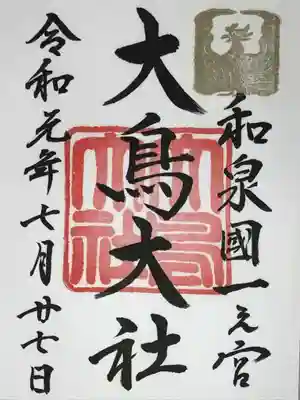 和泉國一之宮
大鳥大社
令和元年七月廿七日
大鳥大社